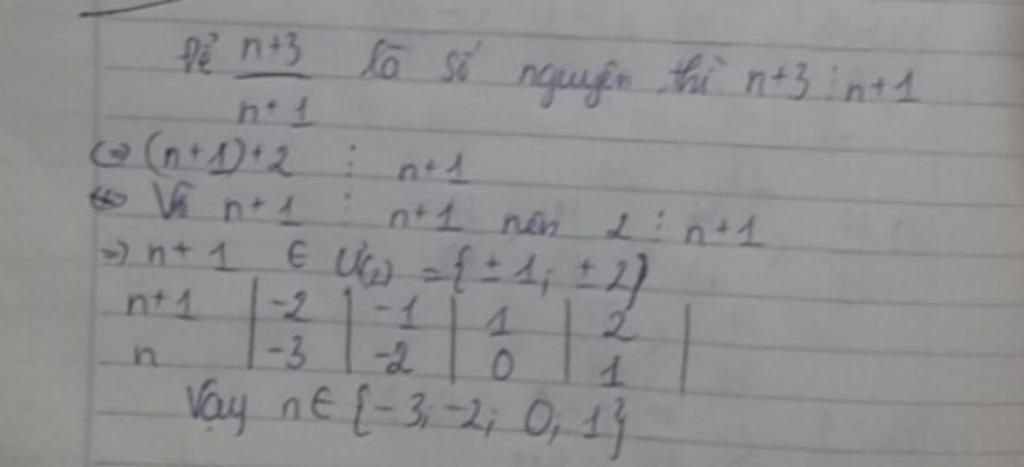 Để n+3 / n+1 là số nguyên thì n+3 ⋮ n+1
(=> (n+1)+2 ⋮ n+1
Vì n+1 ⋮ n+1 nên 2 ⋮ n+1
=> n+1 ∈ Ư(2) = {±1; ±2}
n+1 | -2 | -1 | 1 | 2 |
n | -3 | -2 | 0 | 1 |
Vậy n ∈ {-3; -2; 0; 1}